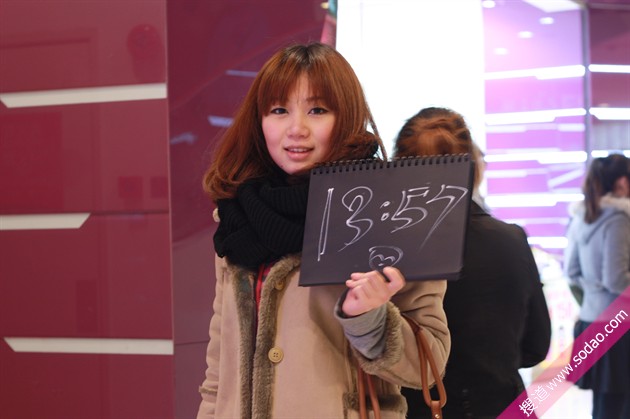 13:57
搜道 www.sodao.com